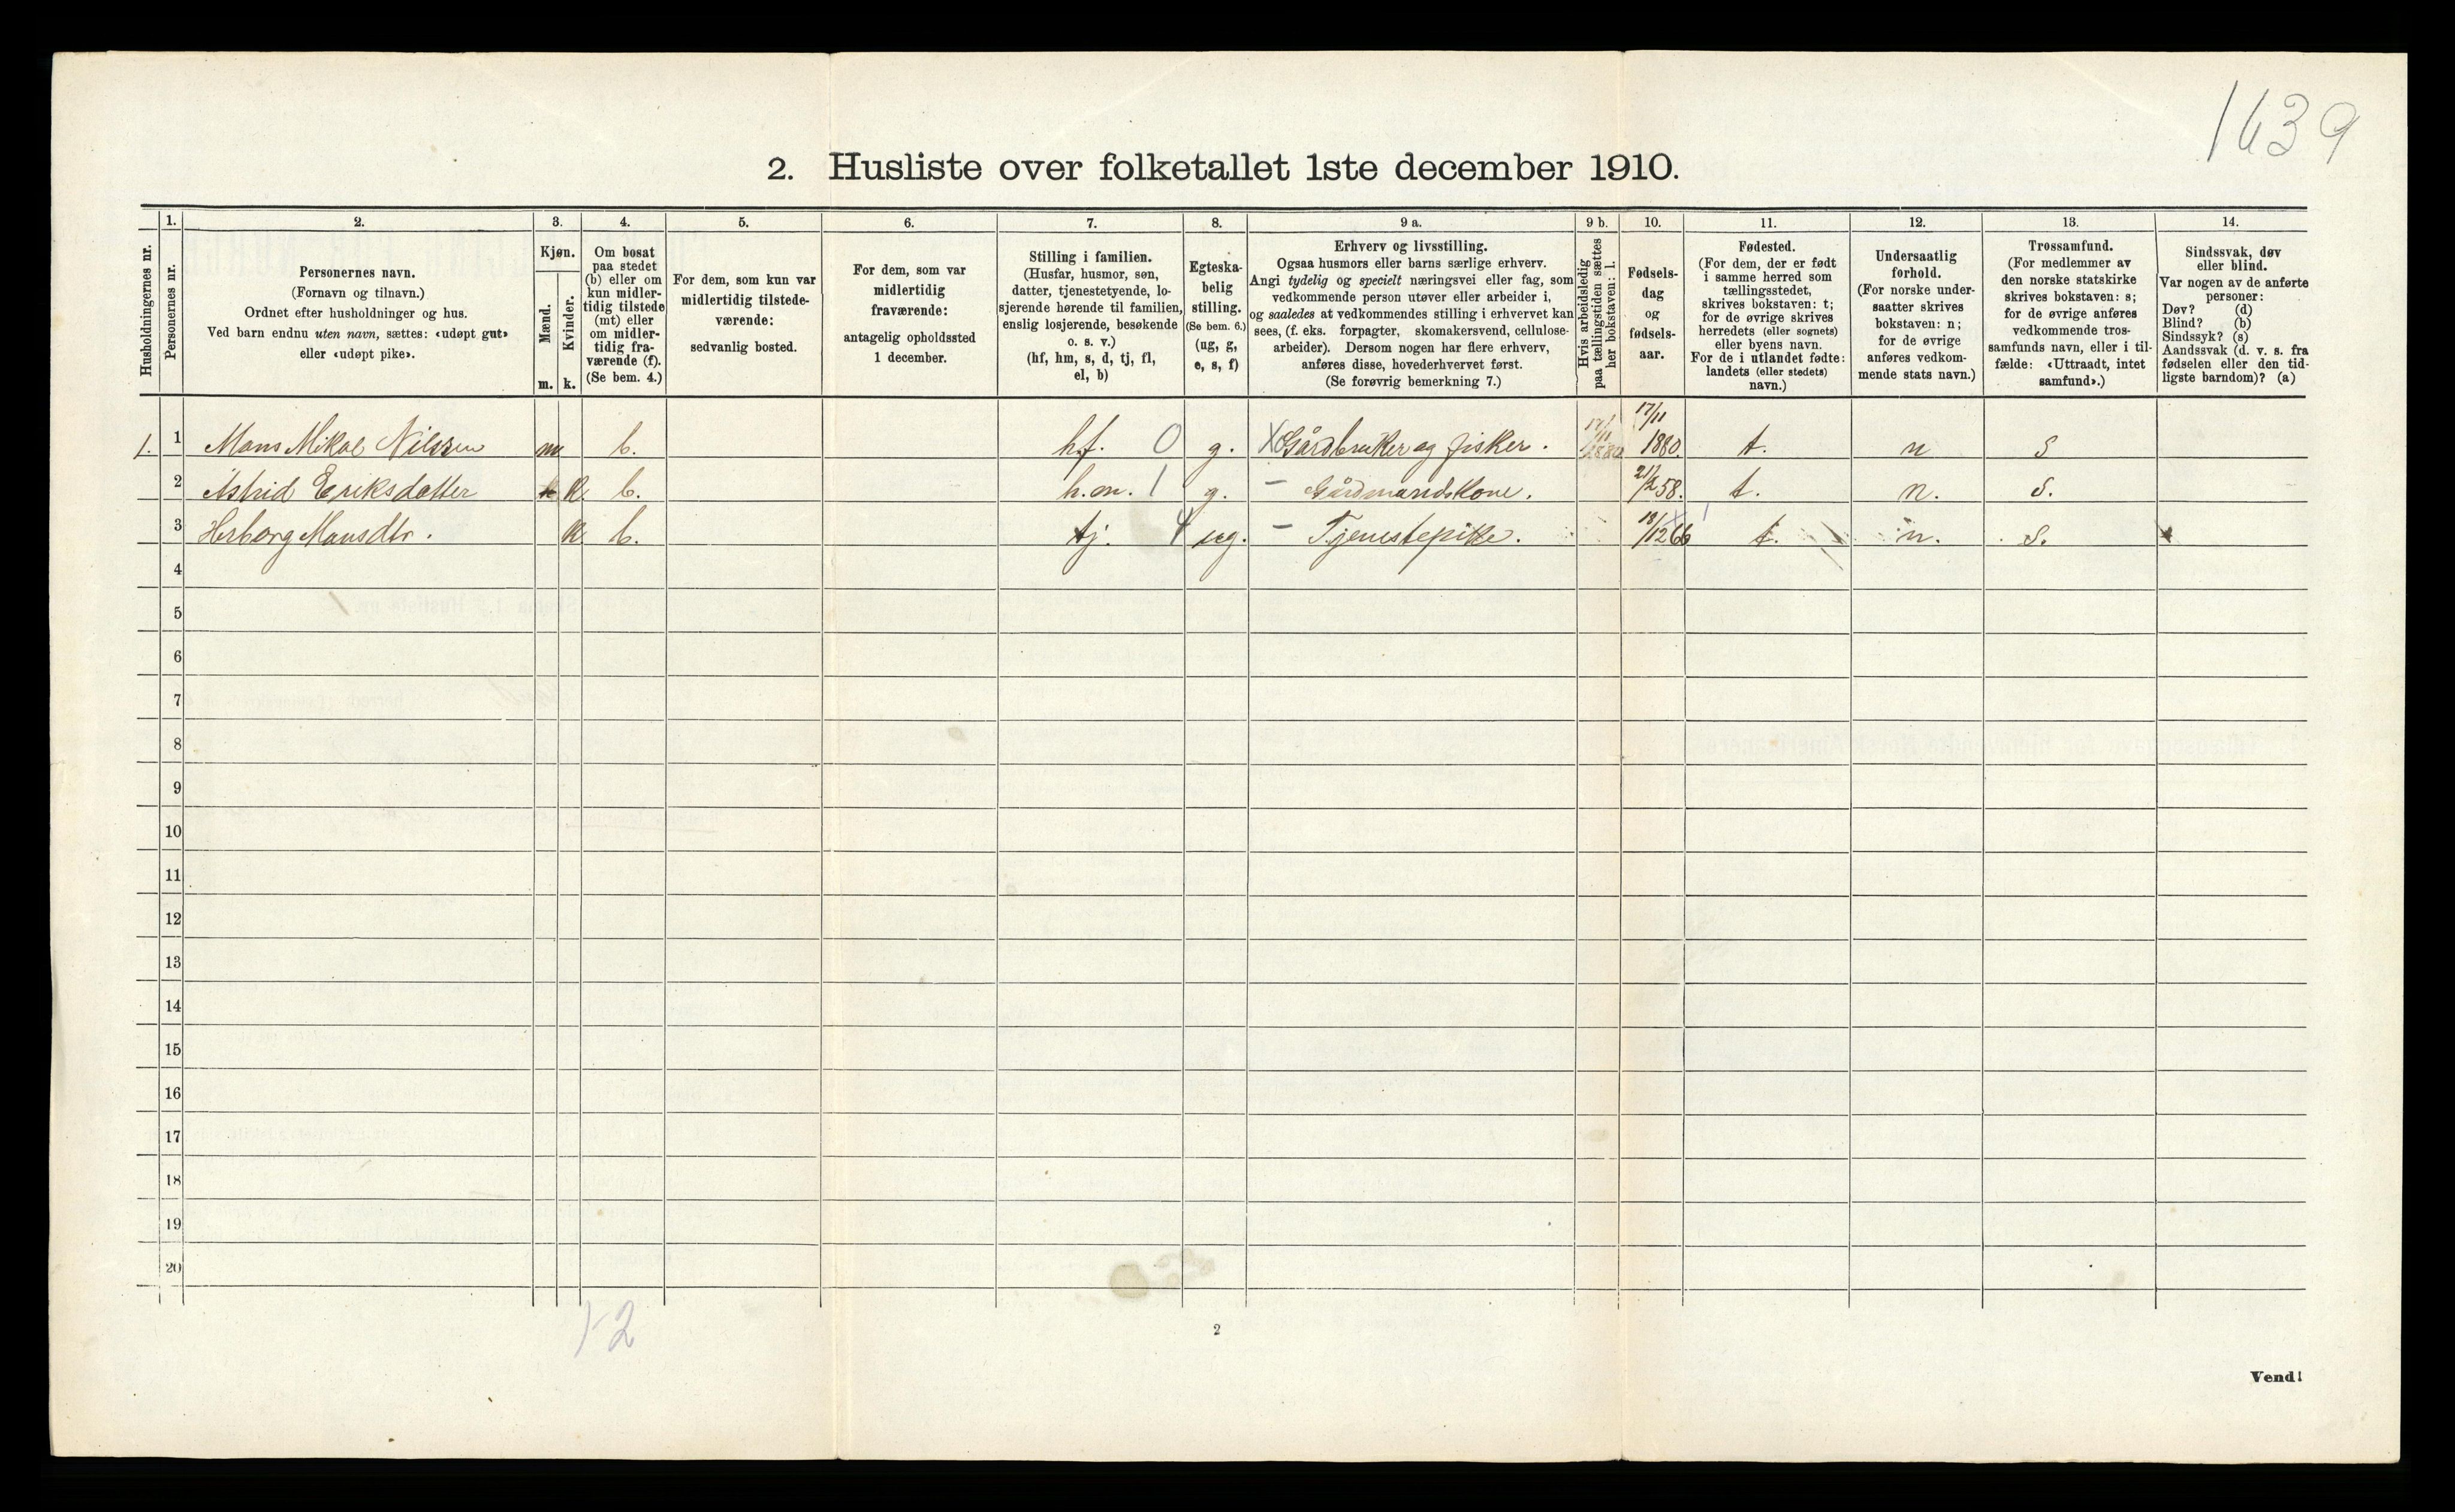 1639
2. Husliste over folketallet 1ste december 1910.
Husholdningernes nr.
1.
Personernes nr.
2.
Personernes navn.
(Fornavn og tilnavn.)
Ordnet efter husholdninger og hus.
Ved barn endnu uten navn, sættes: «udøpt gut»
eller «udøpt pike».
3.
Kjøn.
Mænd.
Kvinder.
m. k.
4.
Om bosat
paa stedet
(b) eller om
kun midler-
tidig tilstede
(mt) eller
om midler-
tidig fra-
værende (f).
(Se bem. 4.)
5.
For dem, som kun var
midlertidig tilstede-
værende:
sedvanlig bosted.
6.
For dem, som var
midlertidig
fraværende:
antagelig opholdssted
1 december.
7.
Stilling i familien.
(Husfar, husmor, søn,
datter, tjenestetyende, lo-
sjerende hørende til familien,
enslig losjerende, besøkende
o. s. v.)
(hf, hm, s, d, tj, fl,
el, b)
8.
Egteska-
belig
stilling.
(Se bem. 6.)
(ug, g,
e, s, f)
9 a.
Erhverv og livsstilling.
Ogsaa husmors eller barns særlige erhverv.
Angi tydelig og specielt næringsvei eller fag, som
vedkommende person utøver eller arbeider i,
og saaledes at vedkommendes stilling i erhvervet kan
sees, (f. eks. forpagter, skomakersvend, cellulose-
arbeider). Dersom nogen har flere erhverv,
anføres disse, hovederhvervet først.
(Se forøvrig bemerkning 7.)
9 b.
Hvis arbeidsledig
paa tællingstiden sættes
her bokstaven: l.
10.
Fødsels-
dag
og
fødsels-
aar.
11.
Fødested.
(For dem, der er født
i samme herred som
tællingsstedet,
skrives bokstaven: t;
for de øvrige skrives
herredets (eller sognets)
eller byens navn.
For de i utlandet fødte:
landets (eller stedets)
navn.)
12.
Undersaatlig
forhold.
(For norske under-
saatter skrives
bokstaven: n;
for de øvrige
anføres vedkom-
mende stats navn.)
13.
Trossamfund.
(For medlemmer av
den norske statskirke
skrives bokstaven: s;
for de øvrige anføres
vedkommende tros-
samfunds navn, eller i til-
fælde: «Uttraadt, intet
samfund».)
14.
Sindssvak, døv
eller blind.
Var nogen av de anførte
personer:
Døv? (d)
Blind? (b)
Sindssyk? (s)
Aandssvak (d. v. s. fra
fødselen eller den tid-
ligste barndom)? (a)
1. 1 Mons Mikal Nilssen m b. hf. 0 g. X Gårdbruker og fisker. 17/11 1880 17/11 1880. t. n s
2 Astrid Eriksdatter k. b. h.m. 1 g. - Gårdmandskone. 21/2 58. t. n. s.
3 Herborg Monsdtr. k b. tj. 4 ug. - Tjenestepike. 18/12 66 t. n. s.
4
5
6
7
8
9
10
11
12
13
14
15
16
17
18
19
20
1-2
2
Vend!